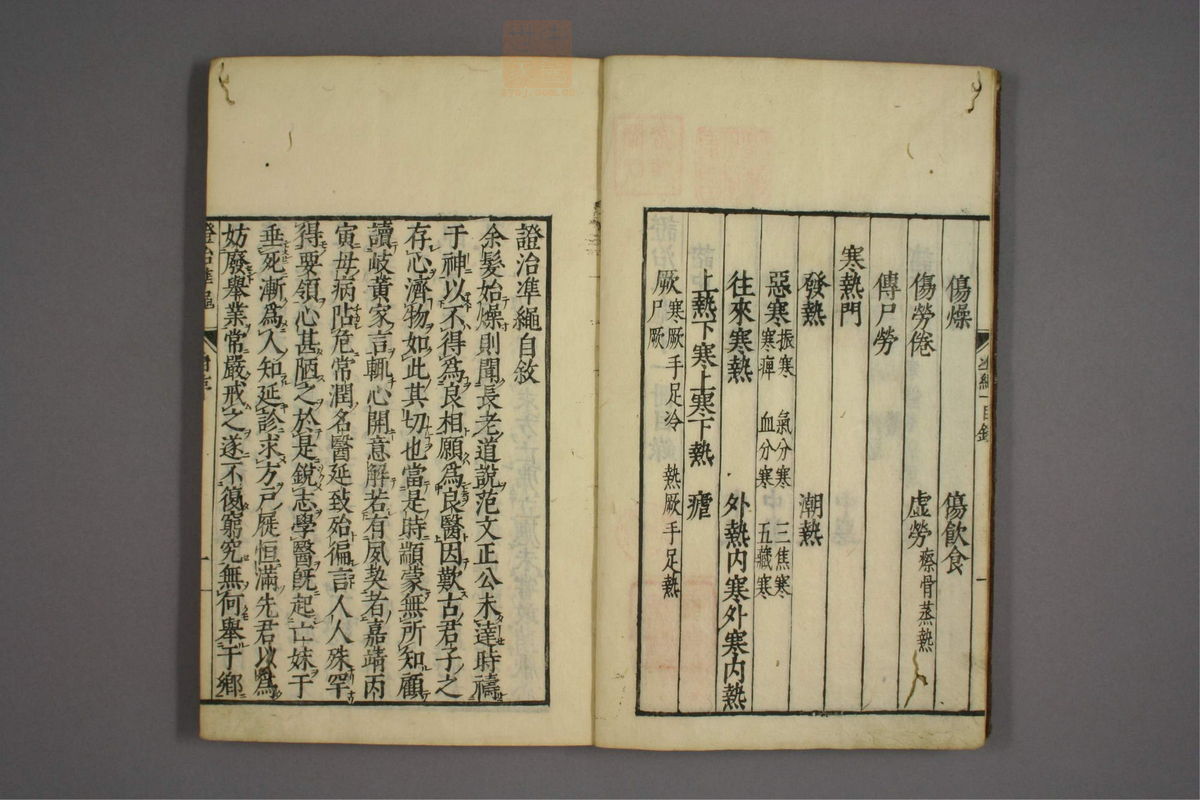 傷燥　傷飲食
傷勞倦　虛勞　瘵骨蒸熱
傳尸勞
寒熱門
發熱　潮熱
惡寒　振寒　氣分寒　三焦寒
寒痺　血分寒　五藏寒
往來寒熱　外熱内寒外寒内熱
上熱下寒上寒下熱　瘧
厥　寒厥手足冷　熱厥手足熱
尸厥
證治凖繩自敘
余髮始燥則聞長老道說范文正公未達時禱
于神以不得爲良相願爲良醫因歎古君子之
存心濟物如此其切也當是時顓蒙無所知顧
讀岐黃家言輒心開意解若有夙契者嘉靖丙
寅母病阽危常潤名醫延致殆徧言人人殊罕
得要領心甚陋之於是銳志學醫旣起亡妹于
垂死漸爲人知延診求方戶屨恒滿先君以爲
妨廢舉業常嚴戒之遂不復窮究無何舉于鄉
證治凖繩